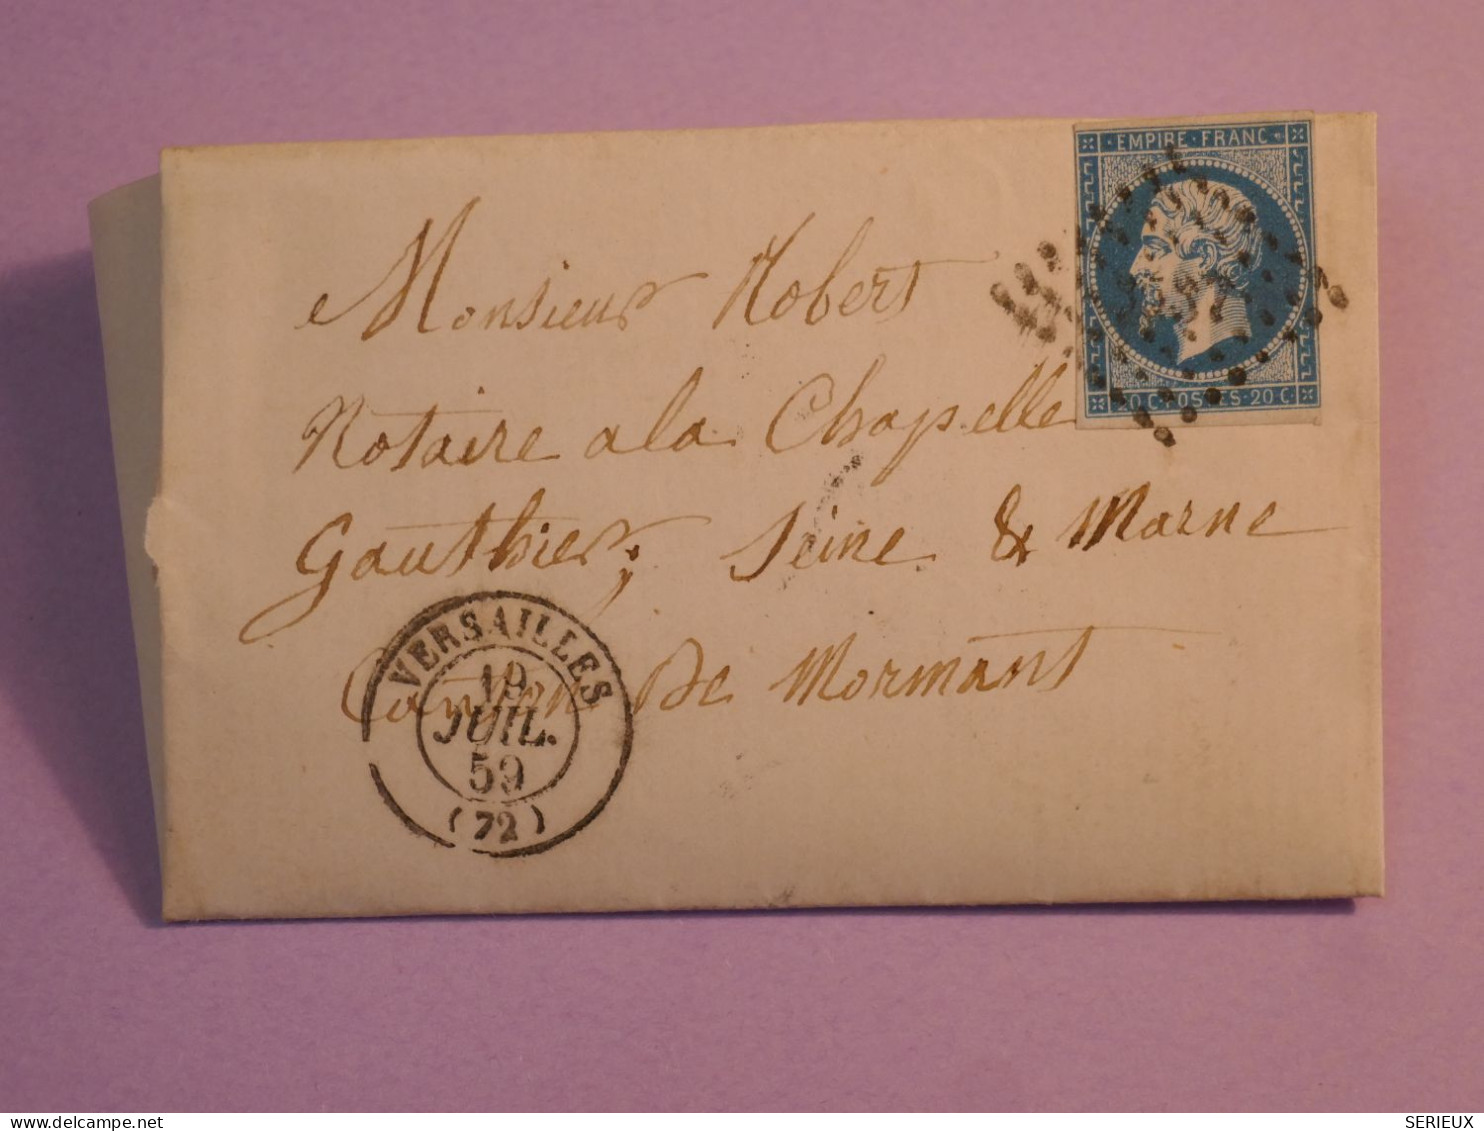 EMPIRE · FRANC ·
20 C · POSTES · 20 C ·
Monsieur Robert
Notaire a la Chapelle
Gauthier, Seine & Marne
Canton De Mormant
VERSAILLES
19
JUIL.
59
(72)
SERIEUX